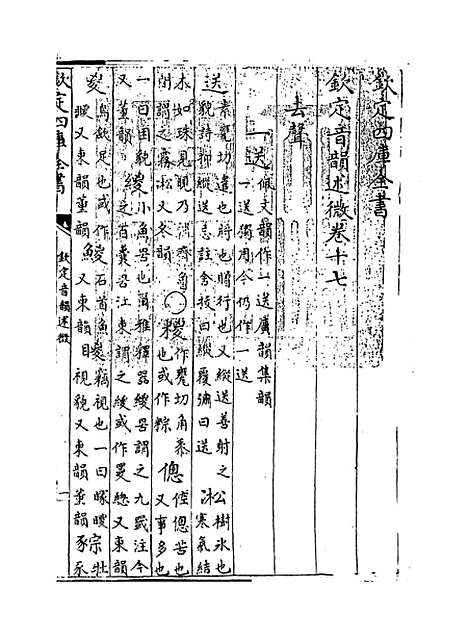 欽定四庫全書
欽定音韻述微卷十七
去聲
一送 佩文韻作一送廣韻集韻
一送獨用今仍作一送
送 素甕切遣也將也贈行也又縱送善射之
貌詩抑縱送忌註舍拔曰縱覆彇曰送 凇 寒氣結
冰如珠見晛乃消齊魯
閒謂之霧凇又冬韻 ○ 糭 作甕切角黍
也或作粽 傯 倥傯苦也
又事多也
一曰困貌 緵 小魚罟也爾雅釋器緵罟謂之九罭注今
之百囊罟江東謂之緵或作罾 又東韻
又董韻
鳥斂足也或作
㬡又東韻董韻 鯼 石首魚
又東韻 竊視也一曰
視貌又東韻董韻 豵 牡
豕
欽定四庫全書
欽定音韻述微
一